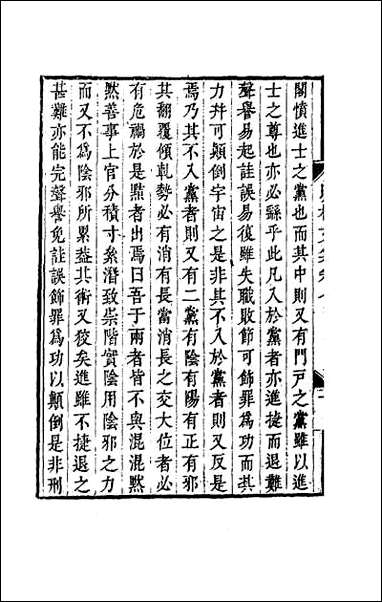 閣憤進士之黨也而其中則又有門戶之黨雖以進
士之尊也亦必繇乎此凡入於黨者亦進捷而退難
聲譽易起註誤易復雖失職敗節可飾罪爲功而其
力幷可顛倒宇宙之是非其不入於黨者則又反是
焉乃其不入黨者則又有二黨有陰有陽有正有邪
其翻覆傾軋勢必有消有長當消長之交大位者必
有危禍於是黠者出焉曰吾于兩者皆不與混混默
然善事上官分積寸絫潛致崇階實陰用陰邪之力
而又不爲陰邪所累葢其術又狡矣進雖不捷退之
甚難亦能完聲譽免註誤飾罪爲功以顛倒是非刑